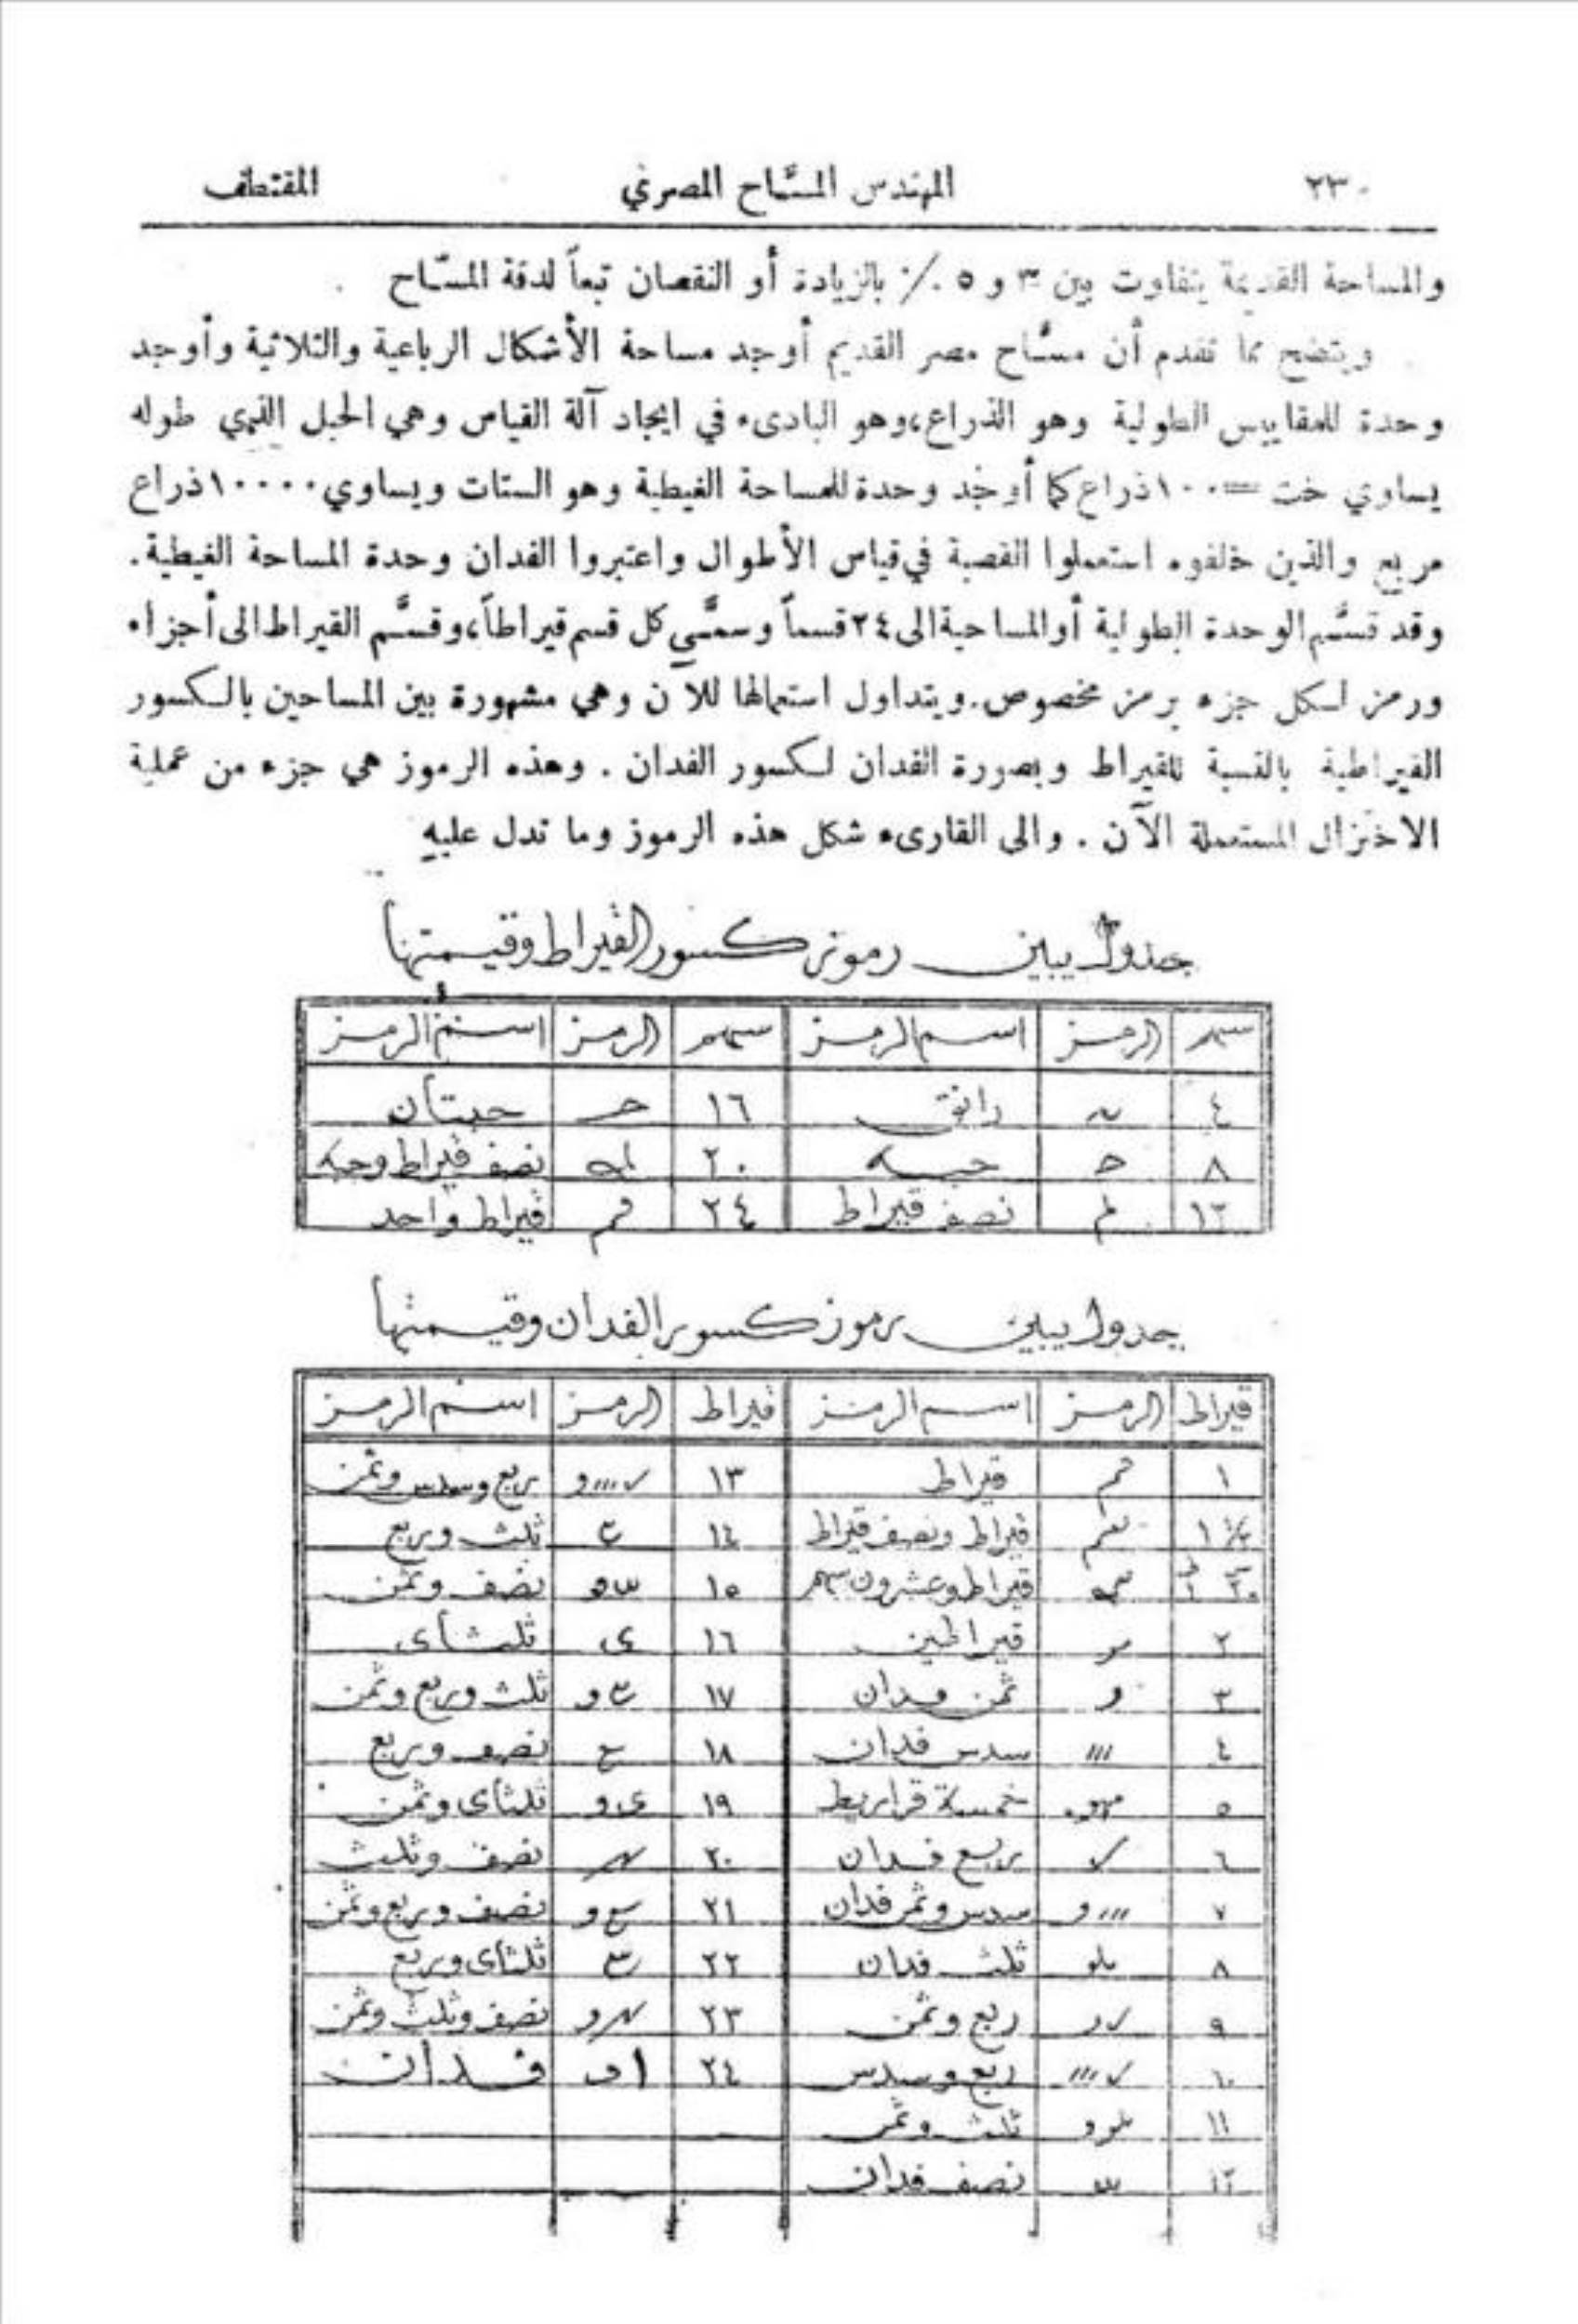 ٢٣٠ المهندس المسّاح المصري المقتطف
والمساحة القديمة يتفاوت بين ٣ و ٥ ٪ بالزيادة أو النقصان تبعاً لدقة المسّاح .
ويتضح مما تقدم أن مسّاح مصر القديم أوجد مساحة الأشكال الرباعية والثلاثية وأوجد
وحدة للمقاييس الطولية وهو الذراع،وهو البادىء في ايجاد آلة القياس وهي الحبل الذي طوله
يساوي خت = ١٠٠ ذراع كما أوجد وحدة للمساحة الغيطية وهو الستات ويساوي ١٠٠٠٠ ذراع
مربع والذين خلفوه استعملوا القصبة في قياس الأطوال واعتبروا الفدان وحدة المساحة الغيطية .
وقد قسَّم الوحدة الطولية أو المساحية الى ٢٤ قسماً وسمَّي كل قسم قيراطاً،وقسَّم القيراط الى أجزاء
ورمز لكل جزء برمز مخصوص . ويتداول استعمالها للآن وهي مشهورة بين المساحين بالكسور
القيراطية بالنسبة للقيراط وبصورة الفدان لكسور الفدان . وهذه الرموز هي جزء من عملية
الاختزال المستعملة الآن . والى القارىء شكل هذه الرموز وما تدل عليه
جدول يبين رموز كسور القيراط وقيمتها
سهم الرمز اسم الرمز سهم الرمز اسم الرمز
٤ دانق ١٦ حبتان
٨ حبه ٢٠ نصف قيراط وحبه
١٢ نصف قيراط ٢٤ قيراط واحد
جدول يبين رموز كسور الفدان وقيمتها
قيراط الرمز اسم الرمز قيراط الرمز اسم الرمز
١ قيراط ١٣ ربع وسدس وثمن
قيراط ونصف قيراط ١٤ ثلث وربع
قيراط وعشرون سهم ١٥ نصف وثمن
٢ قيراطين ١٦ ثلثاى
٣ و ثمن فدان ١٧ ثلث وربع وثمن
٤ /// سدس فدان ١٨ نصف وربع
٥ خمسة قراريط ١٩ ثلثاى وثمن
٦ ربع فدان ٢٠ نصف وثلث
٧ ///و سدس وثمن فدان ٢١ نصف وربع وثمن
٨ ثلث فدان ٢٢ ثلثاى وربع
٩ ربع وثمن ٢٣ نصف وثلث وثمن
١٠ ربع وسدس ٢٤ فدان
١١ ثلث وثمن
١٢ نصف فدان